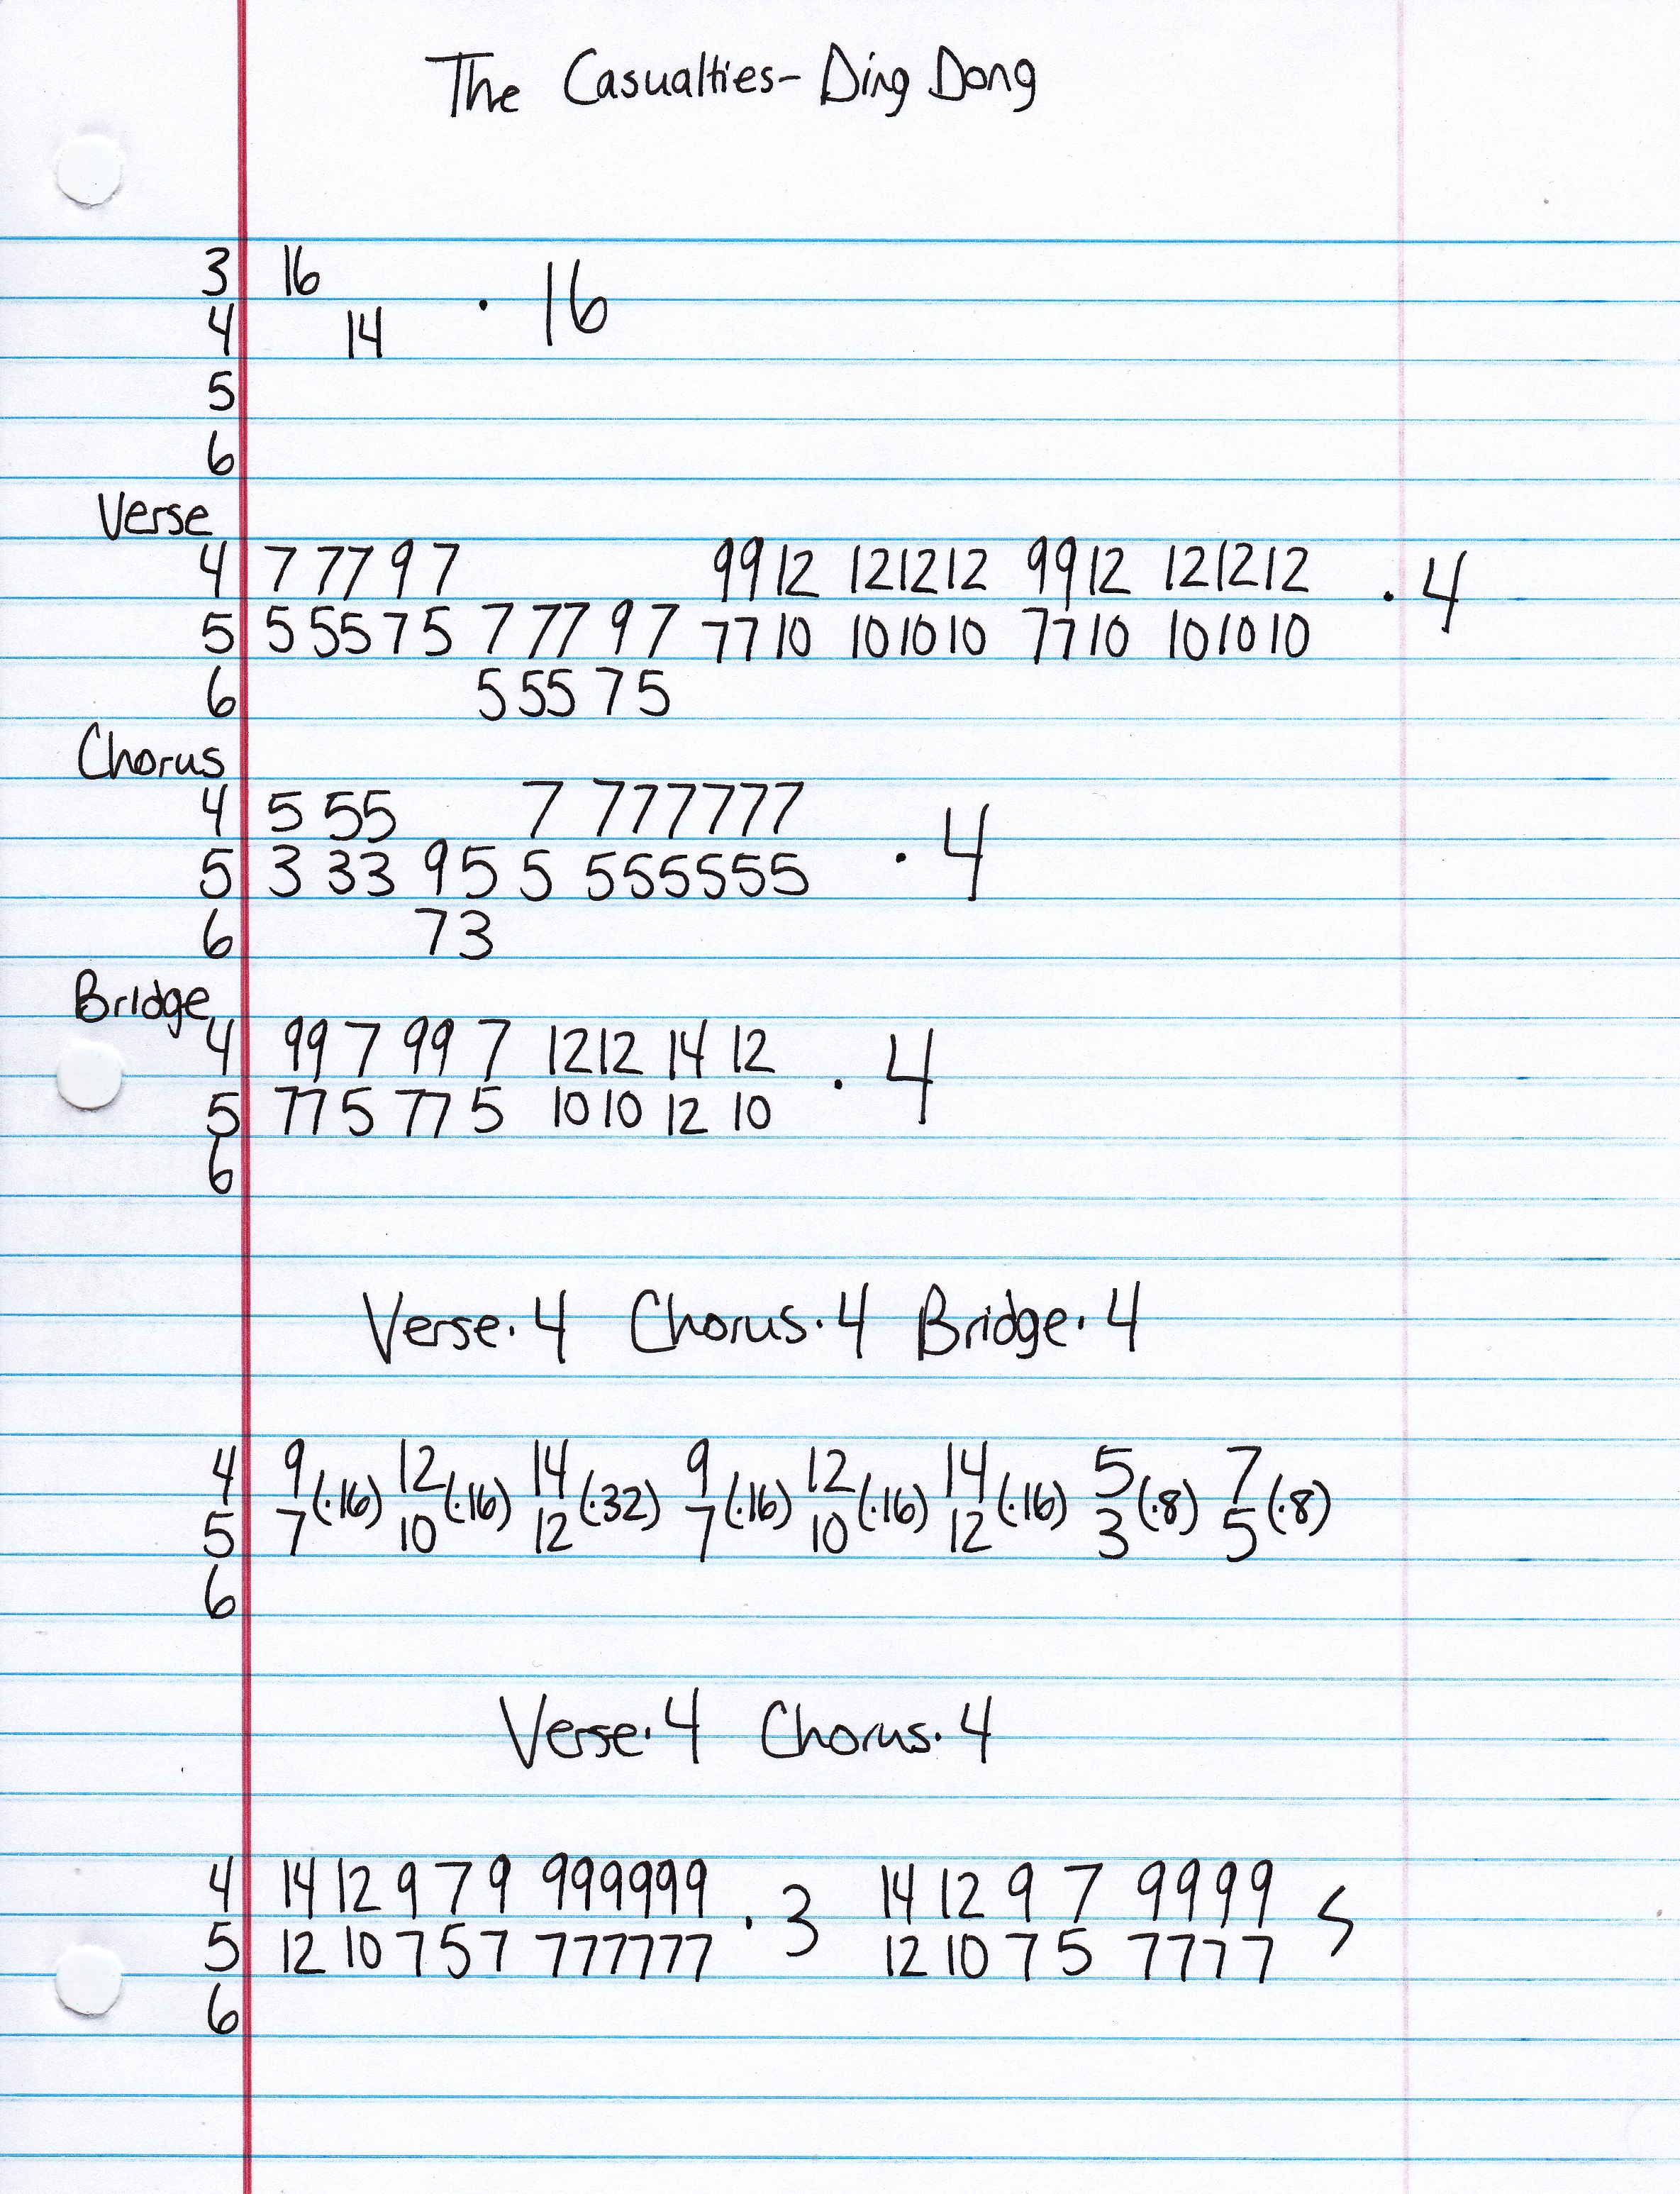 The Casualties- Ding Dong
3 16
4 14 · 16
5
6
Verse
4 7 77 9 7 99 12 12 12 12 99 12 12 12 12 · 4
5 5 55 7 5 7 77 9 7 77 10 10 10 10 77 10 10 10 10
6 5 55 7 5
Chorus
4 5 55 7 777777 · 4
5 3 33 95 5 555555
6 73
Bridge
4 99 7 99 7 12 12 14 12 · 4
5 77 5 77 5 10 10 12 10
6
Verse·4 Chorus·4 Bridge·4
4 9 12 14 9 12 14 5 7
(·16) (·16) (·32) (·16) (·16) (·16) (·8) (·8)
5 7 10 12 7 10 12 3 5
6
Verse·4 Chorus·4
4 14 12 9 7 9 999999 · 3 14 12 9 7 9999 S
5 12 10 7 5 7 777777 12 10 7 5 7777
6